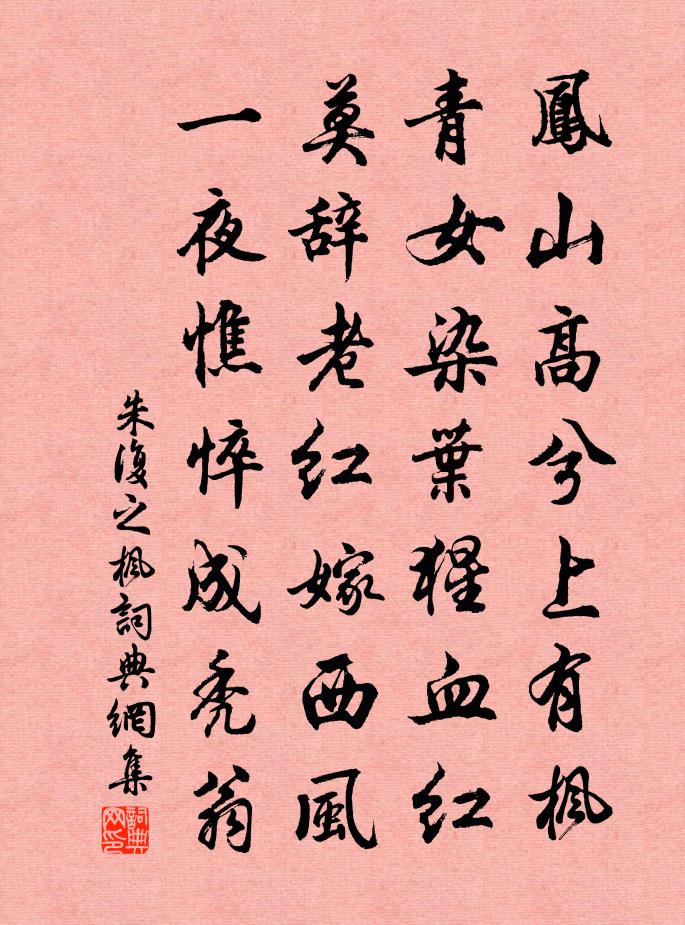 鳳山高兮上有楓
青女染葉猩血紅
莫辞老紅嫁西風
一夜憔悴成秃翁
朱復之楓詞典網集
詞典网印